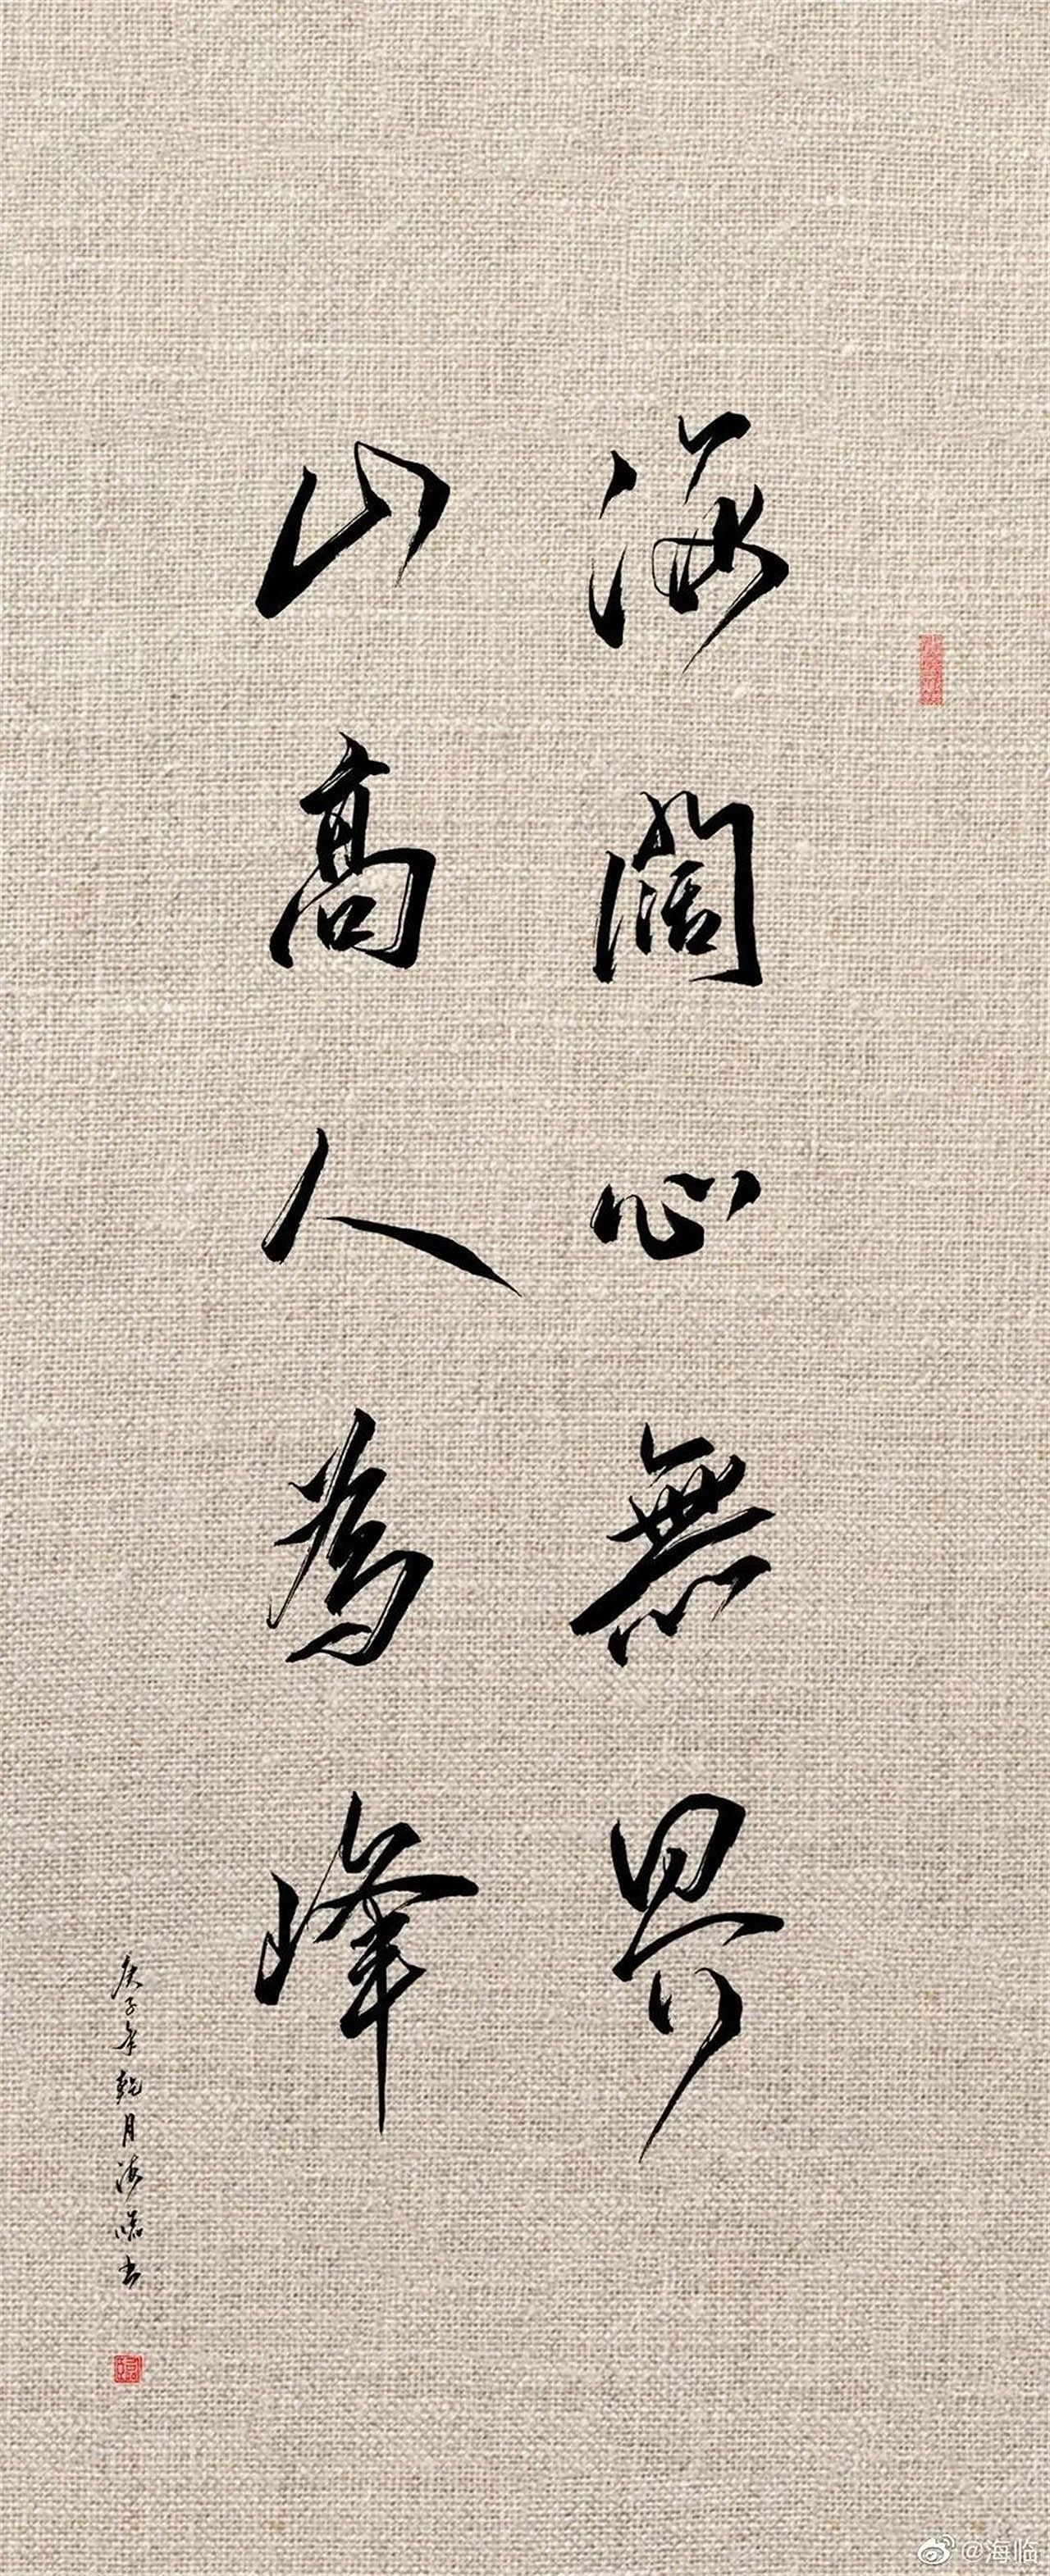 海闊心無界
山高人為峰
庚子年乾月海臨书
@海临